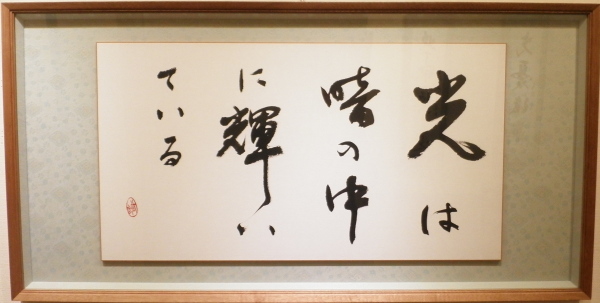 光は
暗の中
に輝い
ている